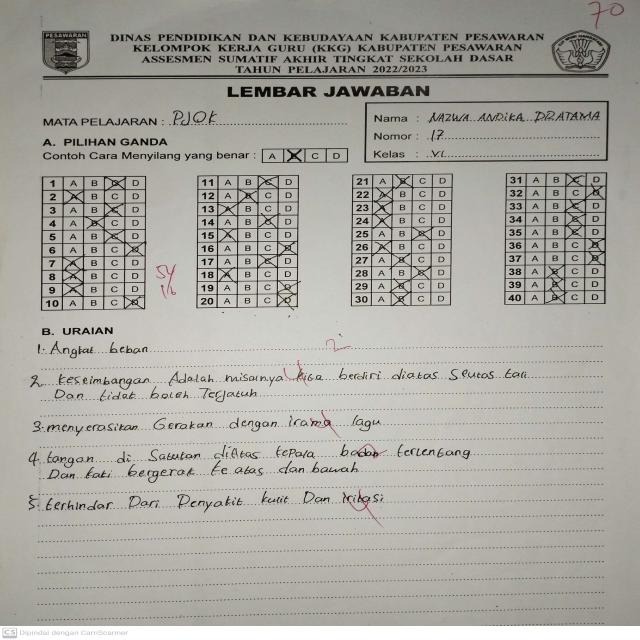 70
PESAWARAN
DINAS PENDIDIKAN DAN KEBUDAYAAN KABUPATEN PESAWARAN
KELOMPOK KERJA GURU (KKG) KABUPATEN PESAWARAN
ASSESMEN SUMATIF AKHIR TINGKAT SEKOLAH DASAR
TAHUN PELAJARAN 2022/2023
LEMBAR JAWABAN
MATA PELAJARAN : PJOK
Nama : NAZWA ANDIKA PRATAMA
Nomor : 17
Kelas : VI
A. PILIHAN GANDA
Contoh Cara Menyilang yang benar : A B C D
1 A B C D
2 A B C D
3 A B C D
4 A B C D
5 A B C D
6 A B C D
7 A B C D
8 A B C D
9 A B C D
10 A B C D
11 A B C D
12 A B C D
13 A B C D
14 A B C D
15 A B C D
16 A B C D
17 A B C D
18 A B C D
19 A B C D
20 A B C D
21 A B C D
22 A B C D
23 A B C D
24 A B C D
25 A B C D
26 A B C D
27 A B C D
28 A B C D
29 A B C D
30 A B C D
31 A B C D
32 A B C D
33 A B C D
34 A B C D
35 A B C D
36 A B C D
37 A B C D
38 A B C D
39 A B C D
40 A B C D
54
16
B. URAIAN
1. Angkat beban 2
2. keseimbangan Adalah misalnya kita berdiri diatas Seutas tali
Dan tidak boleh Terjatuh
3. menyerasikan Gerakan dengan irama lagu
4. tangan di Satukan diatas kepala badan terlentang
Dan kaki bergerak ke atas dan bawah
5. terhindar Dari Penyakit kulit Dan iritasi
CS Dipindai dengan CamScanner